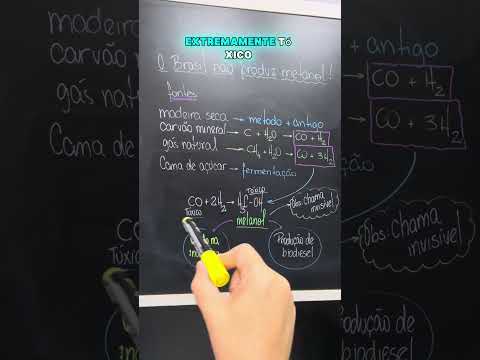 EXTREMAMENTE TÓ
XICO
O Brasil não produz metanol!
fontes
madeira seca → metodo + antigo
carvão mineral → C + H₂O → CO + H₂
gás natural → CH₄ + H₂O → CO + 3H₂
Cana de açucar → fermentação
CO + 2H₂ → H₃C-OH
Tóxico
metanol
Obs: chama
invisivel
Produção de
biodiesel
antigo
CO + H₂
CO + 3H₂
Obs: chama
invisivel
dução de
biodiesel